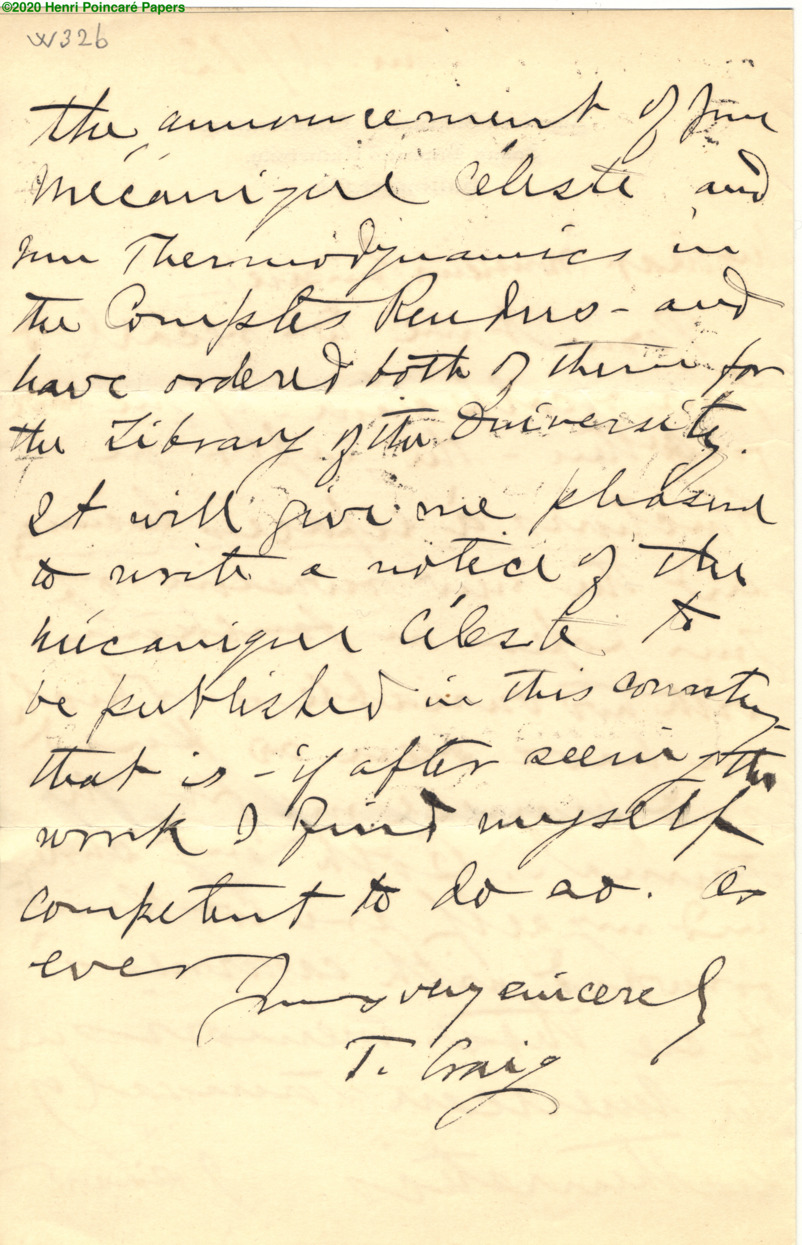 ©2020 Henri Poincaré Papers
W326
the announcement of your
Mécanique Céleste and
your Thermodynamics in
the Comptes Rendus – and
have ordered both of them for
the Library of the University.
It will give me pleasure
to write a notice of the
Mécanique Céleste to
be published in this country
that is – if after seeing the
work I find myself
competent to do so. As
ever
Yours very sincerely
T. Craig